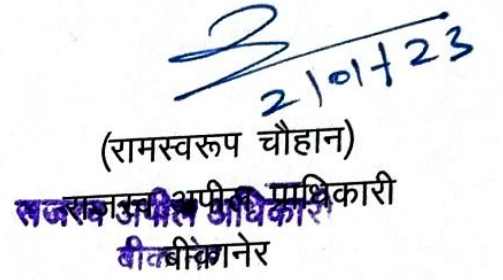 2/01/23
(रामस्वरूप चौहान)
राजस्व अपील प्राधिकारी
राजस्व अपील अधिकारी
बीकानेर